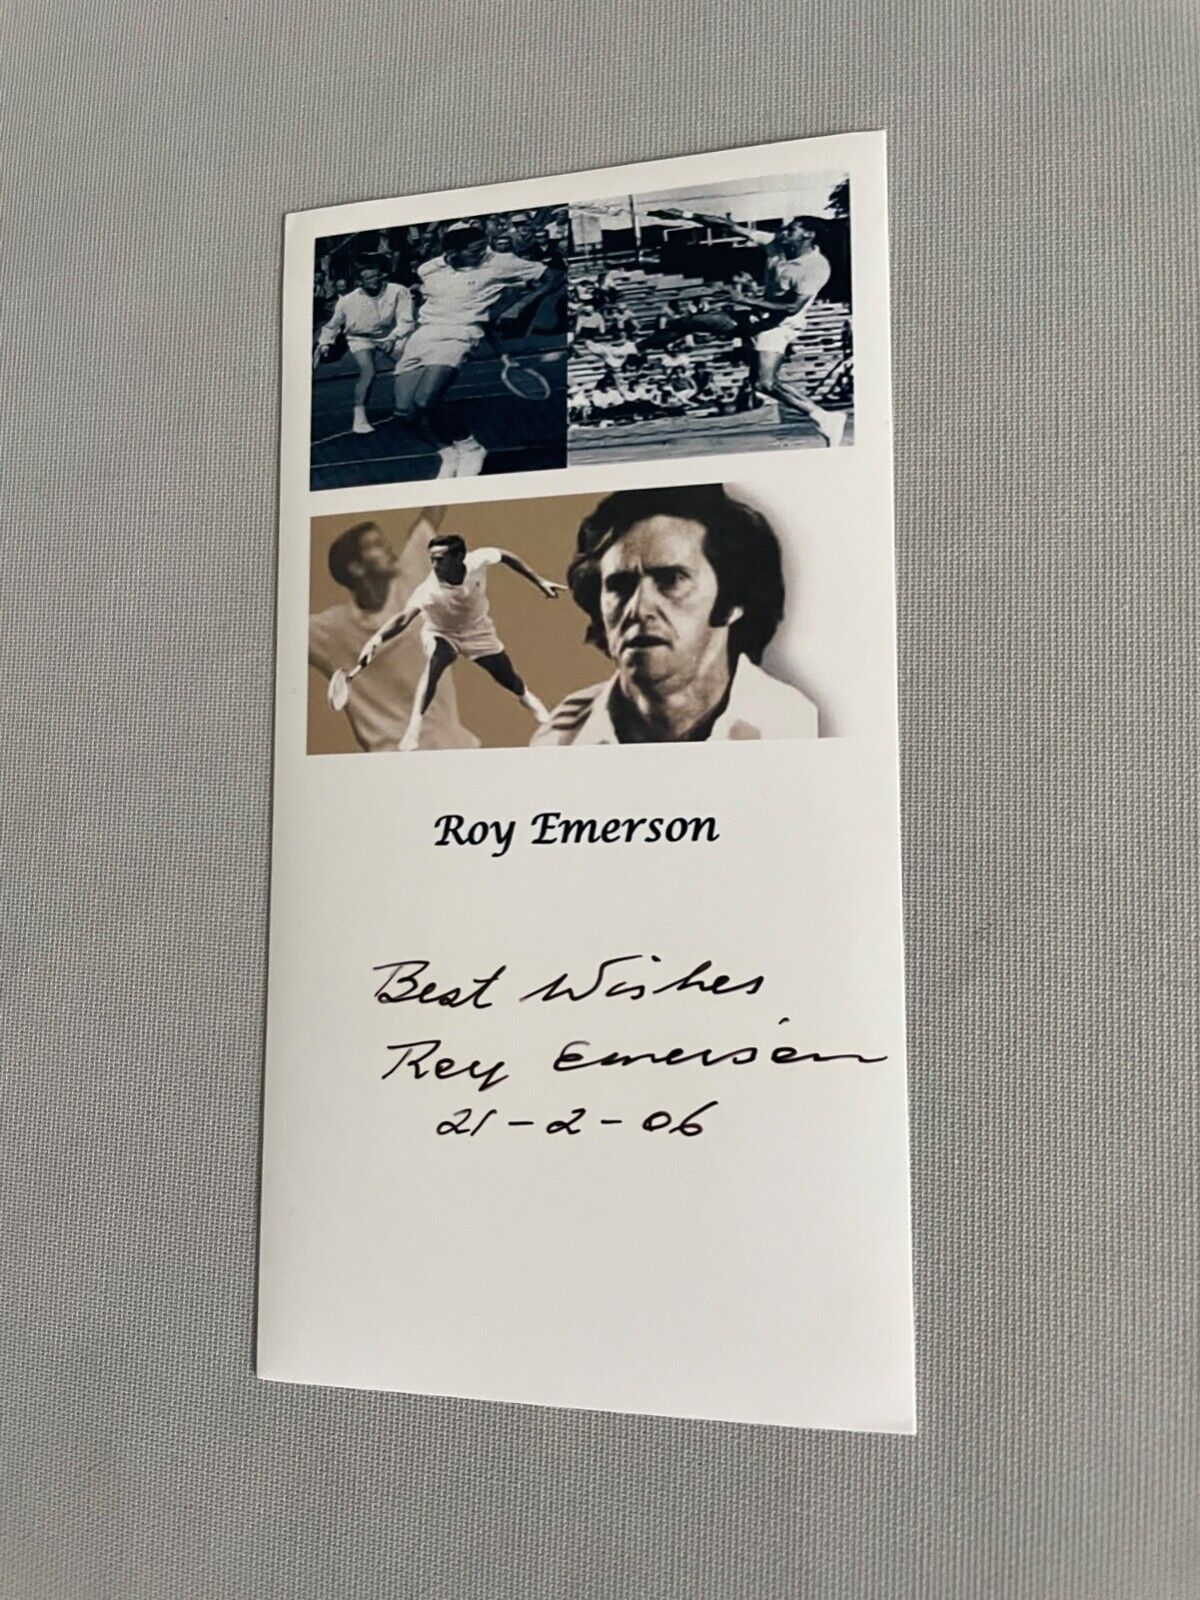 Roy Emerson
Best Wishes
Roy Emerson
21-2-06